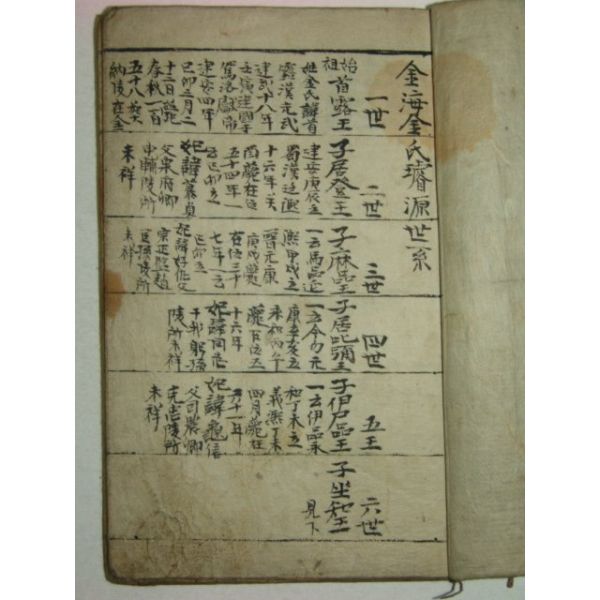 金海金氏璿源世系
一世
始祖首露王
姓金氏諱首
露漢光武
建武十八年
壬寅建國于
駕洛獻帝
建安四年
己卯三月二
十三日薨
春秋一百
五十八葬
納陵在金
二世
子居登王
建安庚辰立
蜀漢延熙
十六年癸
酉薨在位
五十四年一
云己卯立
妃諱慕貞
父泉府卿
申輔陵所
未祥
三世
子麻品王
一云馬品延
熙甲戌立
晋元康
庚戌薨
在位三十
七年一云
己卯立
妃諱好仇父
宗正監趙
匡孫陵所
未祥
四世
子居叱彌王
一云今勿元
康辛亥立
永和丙午
薨在位五
十六年
妃諱阿志
干邦躬孫
陵所未祥
五王
子伊尸品王
一云伊品永
和丁未立
義熙丁未
四月薨在
六十一年
妃諱貞信
父司農卿
克忠陵所
未祥
六世
子坐知王
見下